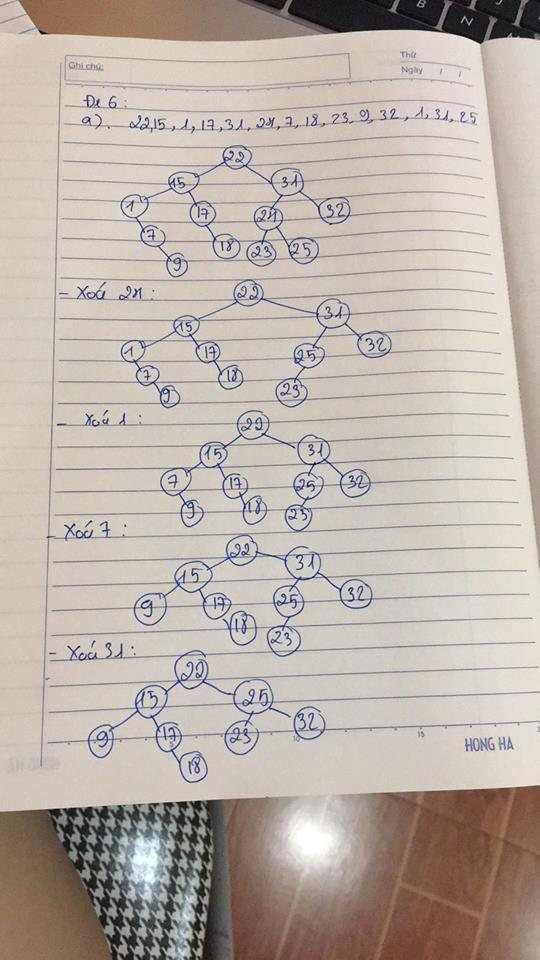 Ghi chú:
Thứ
Ngày / /
Đề 6 :
a). 22,15, 1, 17, 31, 24, 7, 18, 23, 9, 32, 1, 31, 25
22
15 31
1 17 24 32
7 18 23 25
9
- Xoá 24 :
22
15 31
1 17 25 32
7 18 23
9
- Xoá 1 :
22
15 31
7 17 25 32
9 18 23
- Xoá 7 :
22
15 31
9 17 25 32
18 23
- Xoá 31 :
22
15 25
9 17 23 32
18
10 15
HONG HA